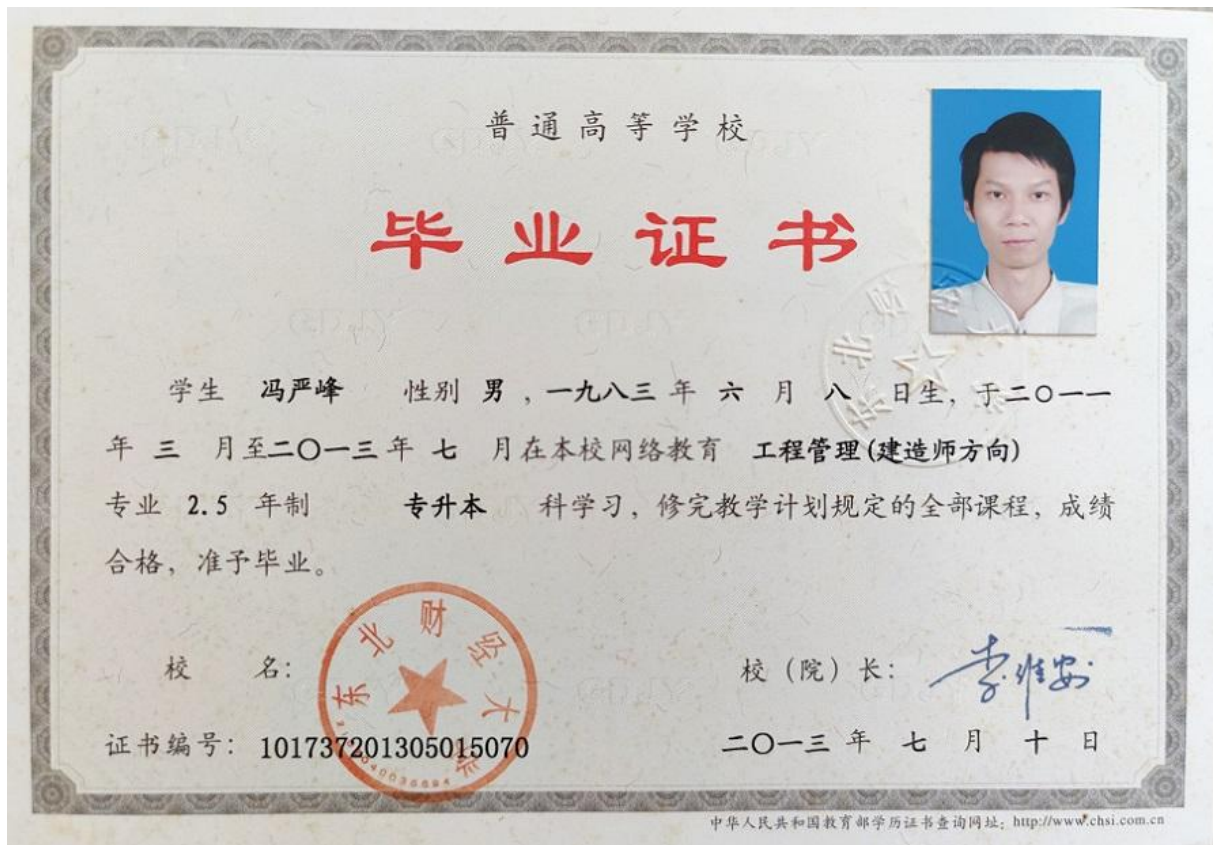 普通高等学校
毕业证书
学生 冯严峰 性别 男，一九八三 年 六 月 八 日生，于二〇一一
年 三 月至二〇一三年 七 月在本校网络教育 工程管理(建造师方向)
专业 2.5 年制 专升本 科学习，修完教学计划规定的全部课程，成绩
合格，准予毕业。
东北财经大学
校 名： 校（院）长： 李维安
证书编号： 101737201305015070 二〇一三 年 七 月 十 日
中华人民共和国教育部学历证书查询网址：http://www.chsi.com.cn